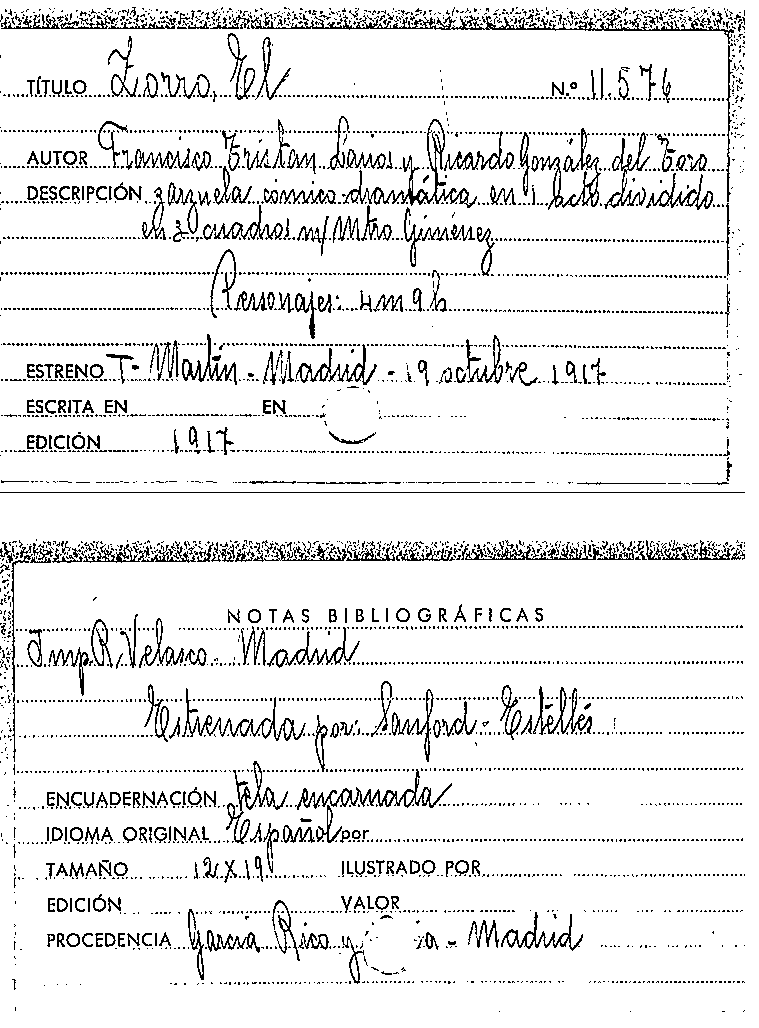 TÍTULO Zorro, El N.º 11.576
AUTOR Francisco Tristan Larios y Ricardo González del Toro
DESCRIPCIÓN zarzuela cómico-dramática en 1 acto dividido
en 3 cuadros m/ Mtro Giménez
Personajes: 4 m 9 h
ESTRENO T- Martín - Madrid - 19 octubre 1917
ESCRITA EN EN
EDICIÓN 1917
NOTAS BIBLIOGRÁFICAS
Imp R. Velasco - Madrid
Estrenada por: Sanford - Estéllés
ENCUADERNACIÓN tela encarnada
IDIOMA ORIGINAL Español por
TAMAÑO 12 X 19 ILUSTRADO POR
EDICIÓN VALOR
PROCEDENCIA García Rico y - Madrid